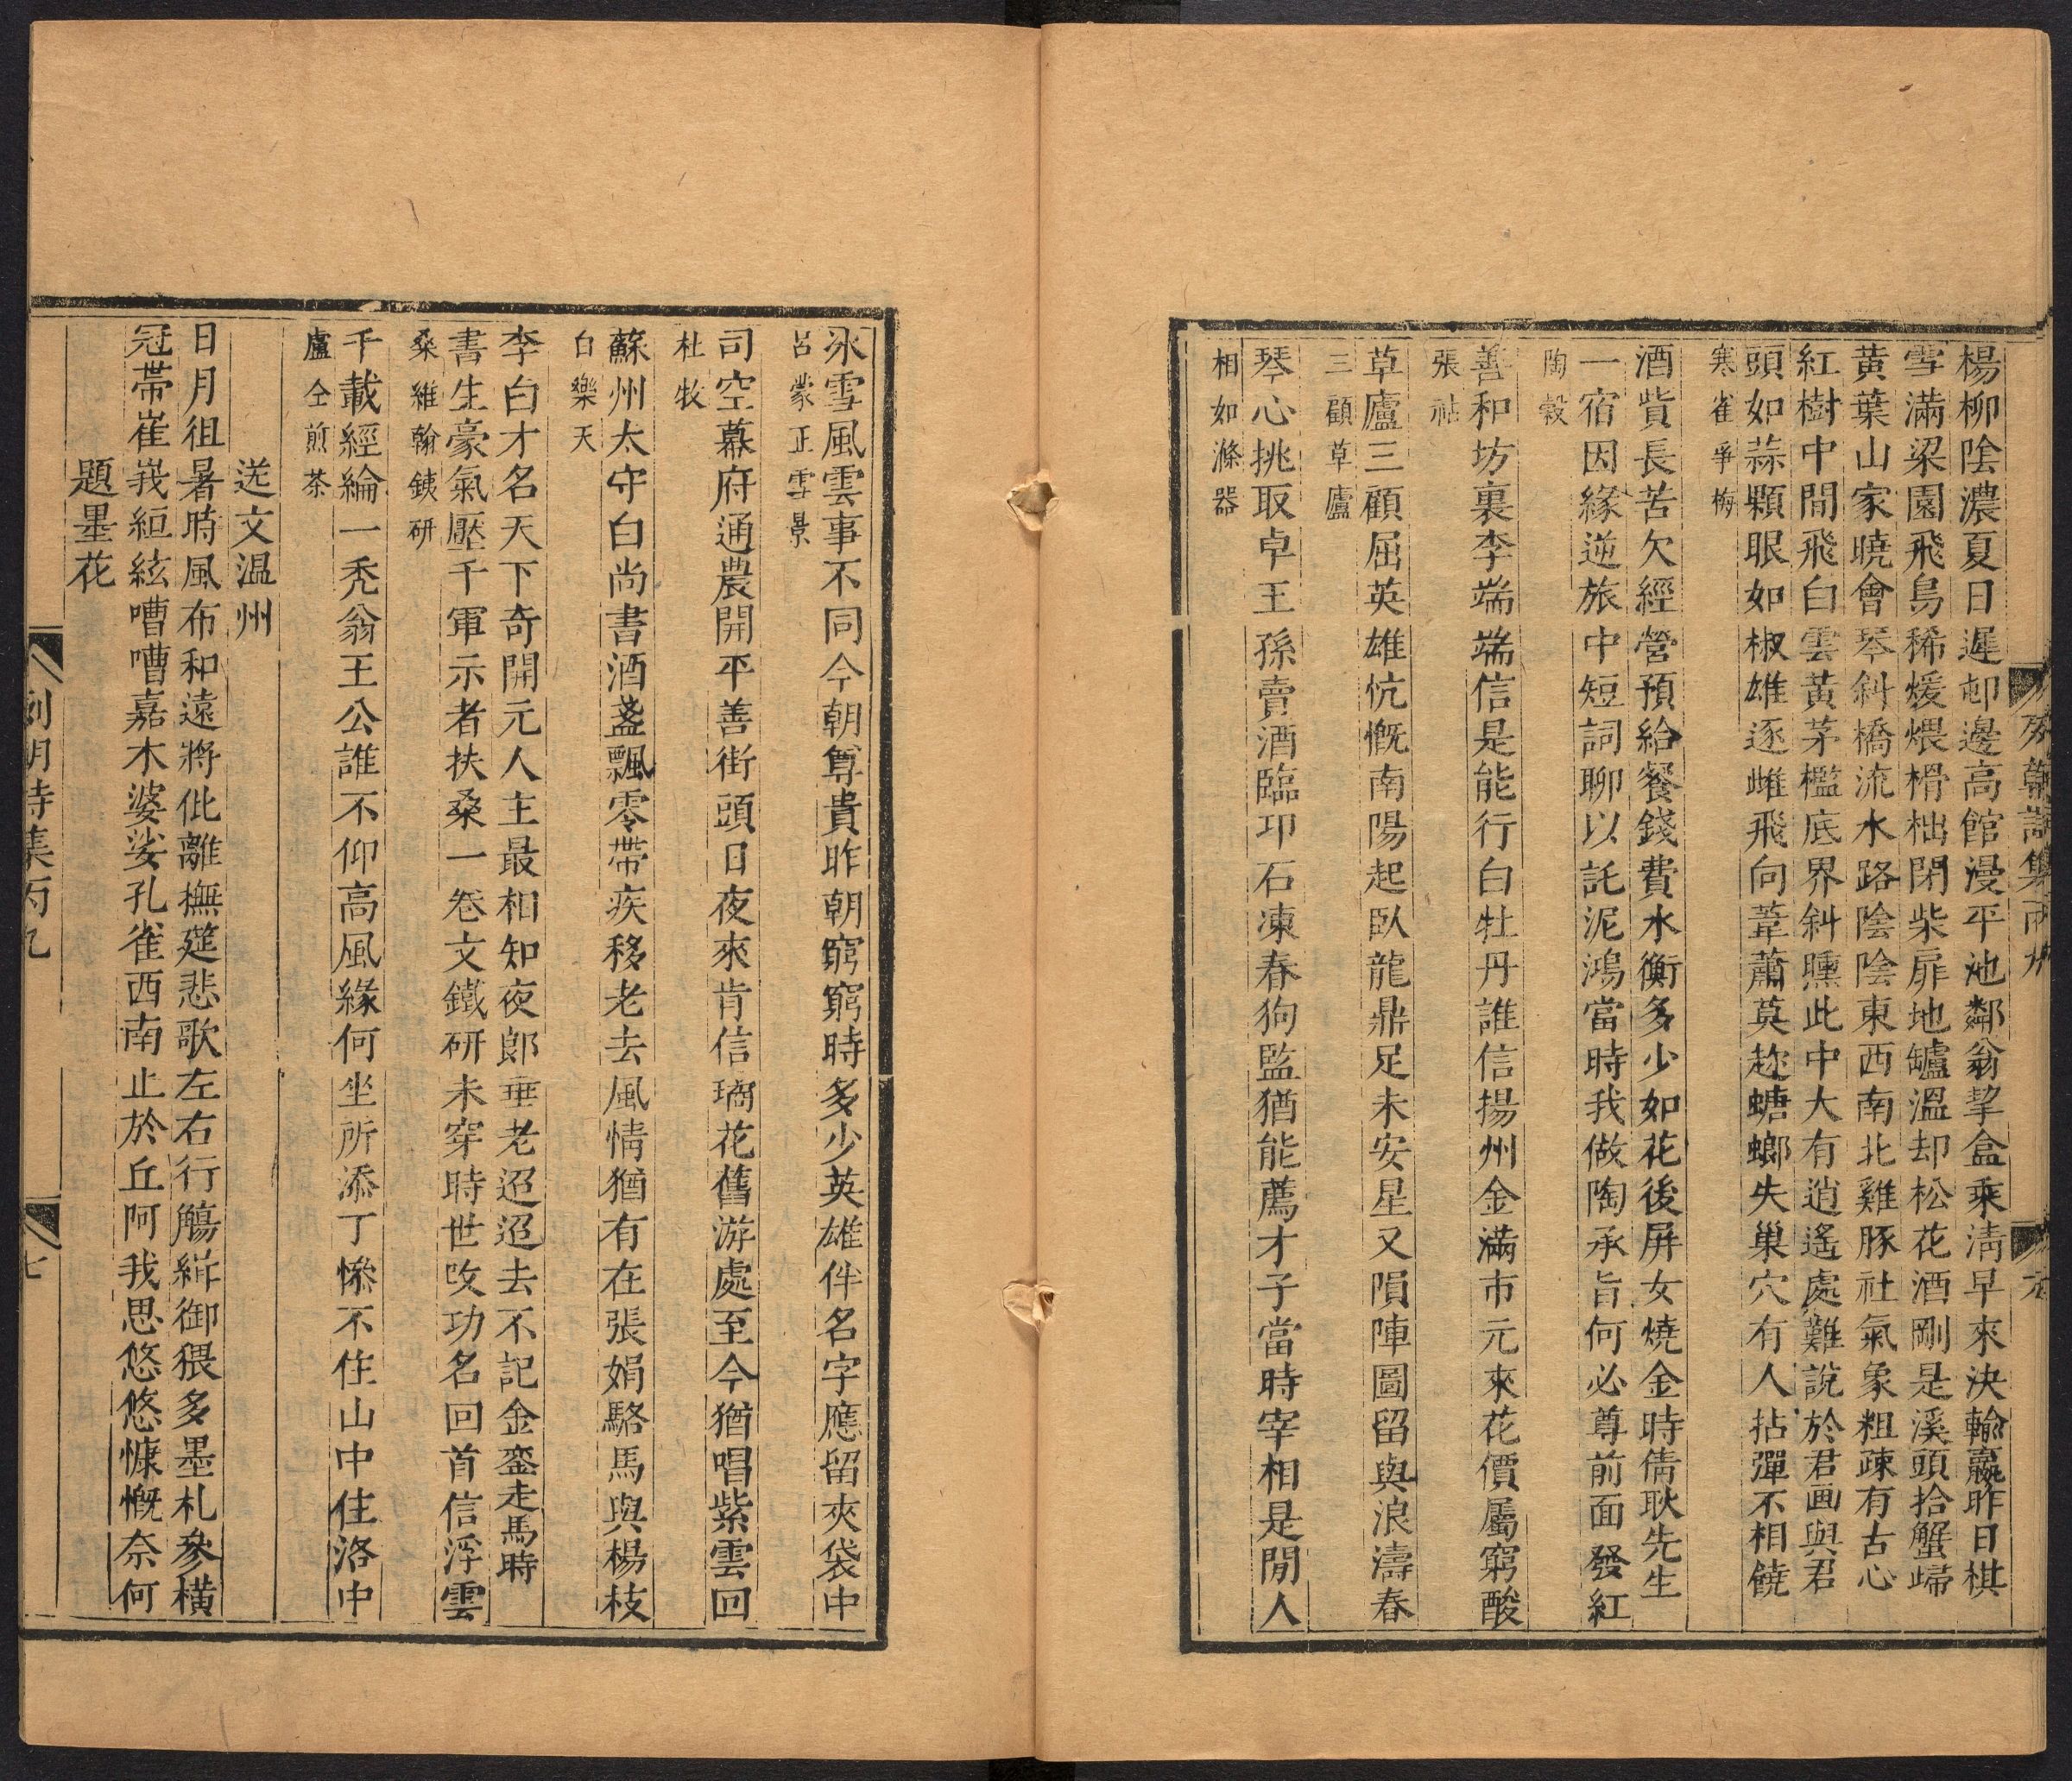 列朝詩集丙九
楊柳陰濃夏日遲邨邊高館漫平池鄰翁挈盒乘淸早來決輸贏昨日棋
雪滿梁園飛鳥稀煖煨榾柮閉柴扉地罏溫却松花酒剛是溪頭拾蟹歸
黃葉山家曉會琴斜橋流水路陰陰東西南北雞豚社氣象粗疎有古心
紅樹中間飛白雲黃茅檻底界斜曛此中大有逍遙處難說於君画與君
頭如蒜顆眼如椒雄逐雌飛向葦蕭莫趂螗螂失巢穴有人拈彈不相饒
寒雀爭梅
酒貲長苦欠經營預給餐錢費水衡多少如花後屛女燒金時倩耿先生
一宿因緣逆旅中短詞聊以託泥鴻當時我做陶承旨何必尊前面發紅
陶穀
善和坊裏李端端信是能行白牡丹誰信揚州金滿市元來花價屬窮酸
張祜
草廬三顧屈英雄忼慨南陽起臥龍鼎足未安星又隕陣圖留與浪濤春
三顧草廬
琴心挑取卓王孫賣酒臨卭石凍春狗監猶能薦才子當時宰相是閒人
相如滌器
氷雪風雲事不同今朝尊貴昨朝窮窮時多少英雄伴名字應留夾袋中
呂蒙正雪景
司空幕府通農開平善街頭日夜來肯信璚花舊游處至今猶唱紫雲回
杜牧
蘇州太守白尚書酒盞飄零帶疾移老去風情猶有在張娟駱馬與楊枝
白樂天
李白才名天下奇開元人主最相知夜郎垂老迢迢去不記金鑾走馬時
書生豪氣壓千軍示者扶桑一卷文鐵研未穿時世攺功名回首信浮雲
桑維翰銕研
千載經綸一禿翁王公誰不仰高風緣何坐所添丁慘不住山中住洛中
盧仝煎茶
送文温州
日月徂暑時風布和遠將仳離撫筵悲歌左右行觴緕御猥多墨札參橫
冠帶崔嵬絙絃嘈嘈嘉木婆娑孔雀西南止於丘阿我思悠悠慷慨奈何
題墨花
列朝詩集丙九
七